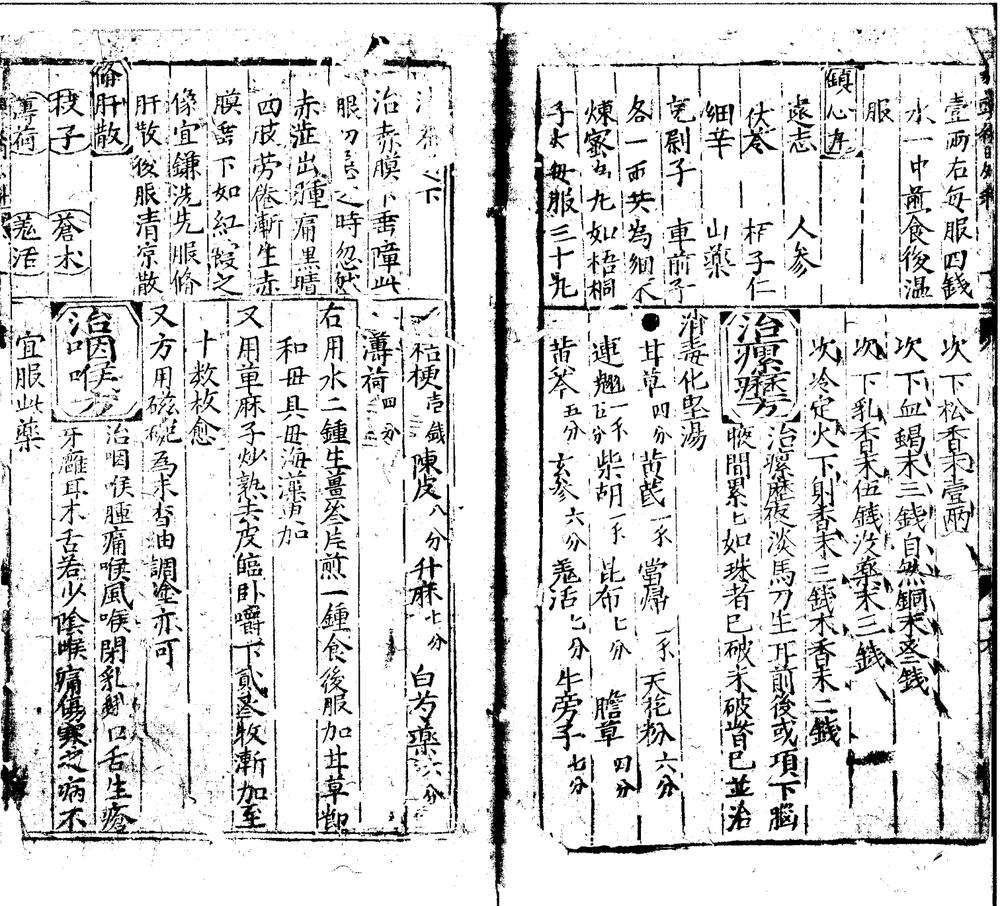 壹兩右每服四錢
水一中煎食後温
服
鎮心丸
遠志 人参
伏苓 柏子仁
細辛 山藥
茺尉子 車前子
各一兩共為細末
煉蜜為丸如梧桐
子大每服三十丸
次下松香末壹兩
次下血蝎末三錢自然銅末叁錢
次下乳香末伍錢沒藥末三錢
次冷定火下射香末三錢木香末二錢
治瘰癧方
治瘰癧夜淡馬刀生耳前後或項下腦
腋間累匕如珠者已破未破皆已並治
消毒化堅湯
甘草四分 黄芪一錢 當歸一錢 天花粉六分
連翹一錢五分 柴胡一錢 昆布七分 膽草四分
黄芩五分 玄参六分 羗活七分 牛旁子七分
之下
治赤膜下垂障此
眼初患之時忽然
赤澁出腫痛黑睛
四肢劳倦漸生赤
膜垂下如紅霞之
像宜鐮洗先服脩
肝散後服清凉散
脩肝散
枝子 蒼术
薄荷 羗活
桔梗壱錢 陳皮八分 升麻七分 白芍藥六分
薄荷四分
右用水二鍾生薑叄片煎一鍾食後服加甘草
和母貝母海藻更加
又用草麻子炒熟去皮臨卧嚼下貳叁枚漸加至
十数枚愈
又方用磁碗為末香油調塗亦可
治因喉方
治咽喉腫痛喉風喉閉乳鵝口舌生瘡
牙癰耳木舌若少陰喉痛傷寒之病不
宜服此藥